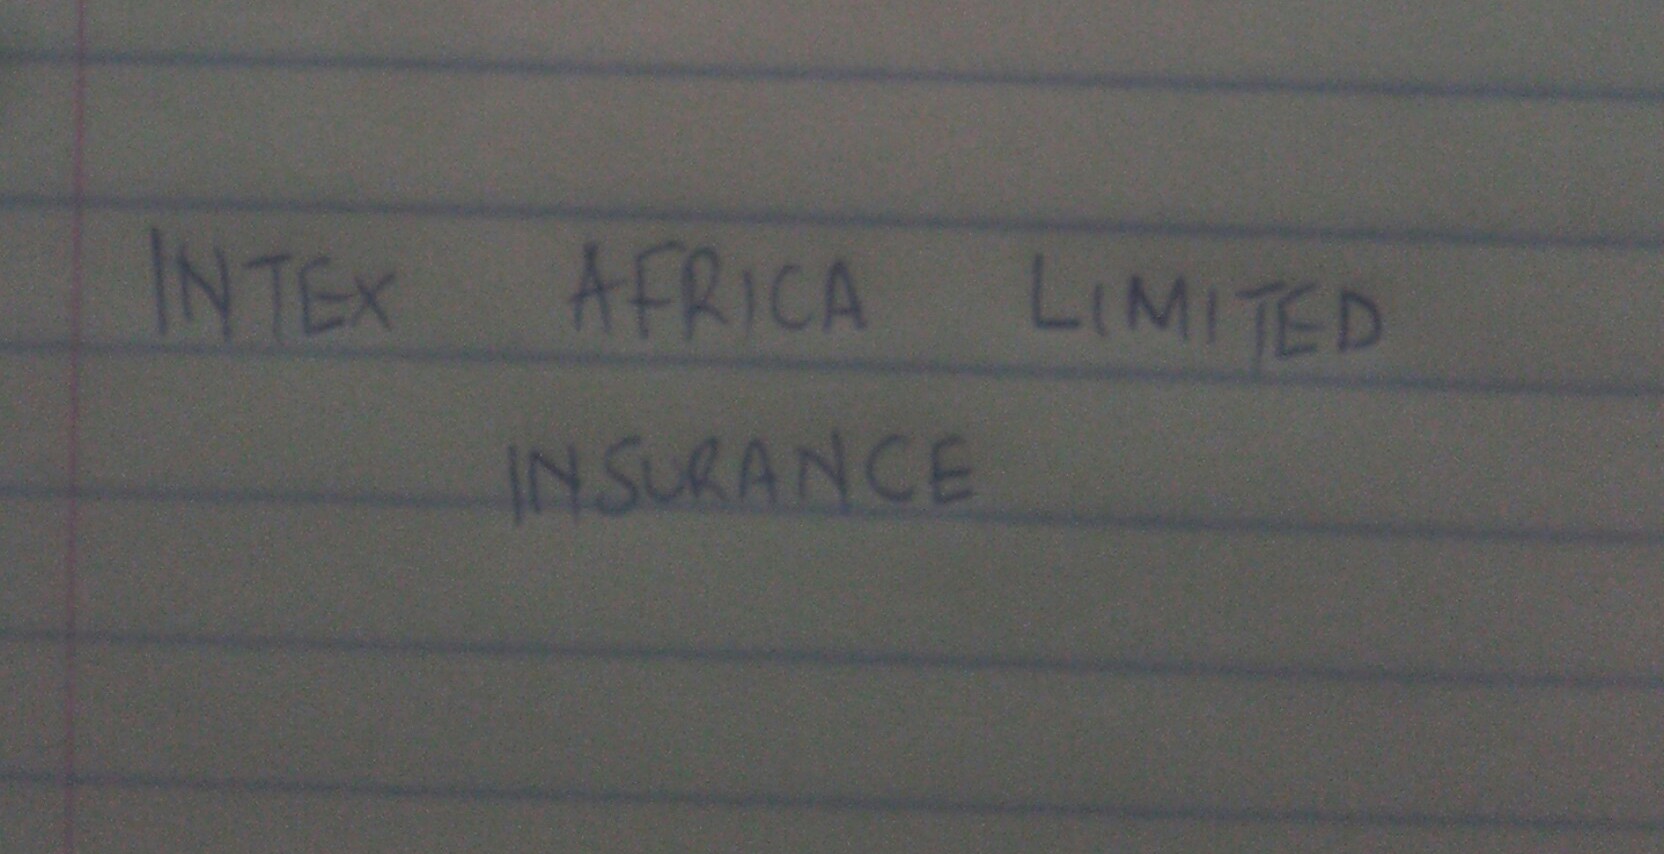 INTEX AFRICA LIMITED
INSURANCE